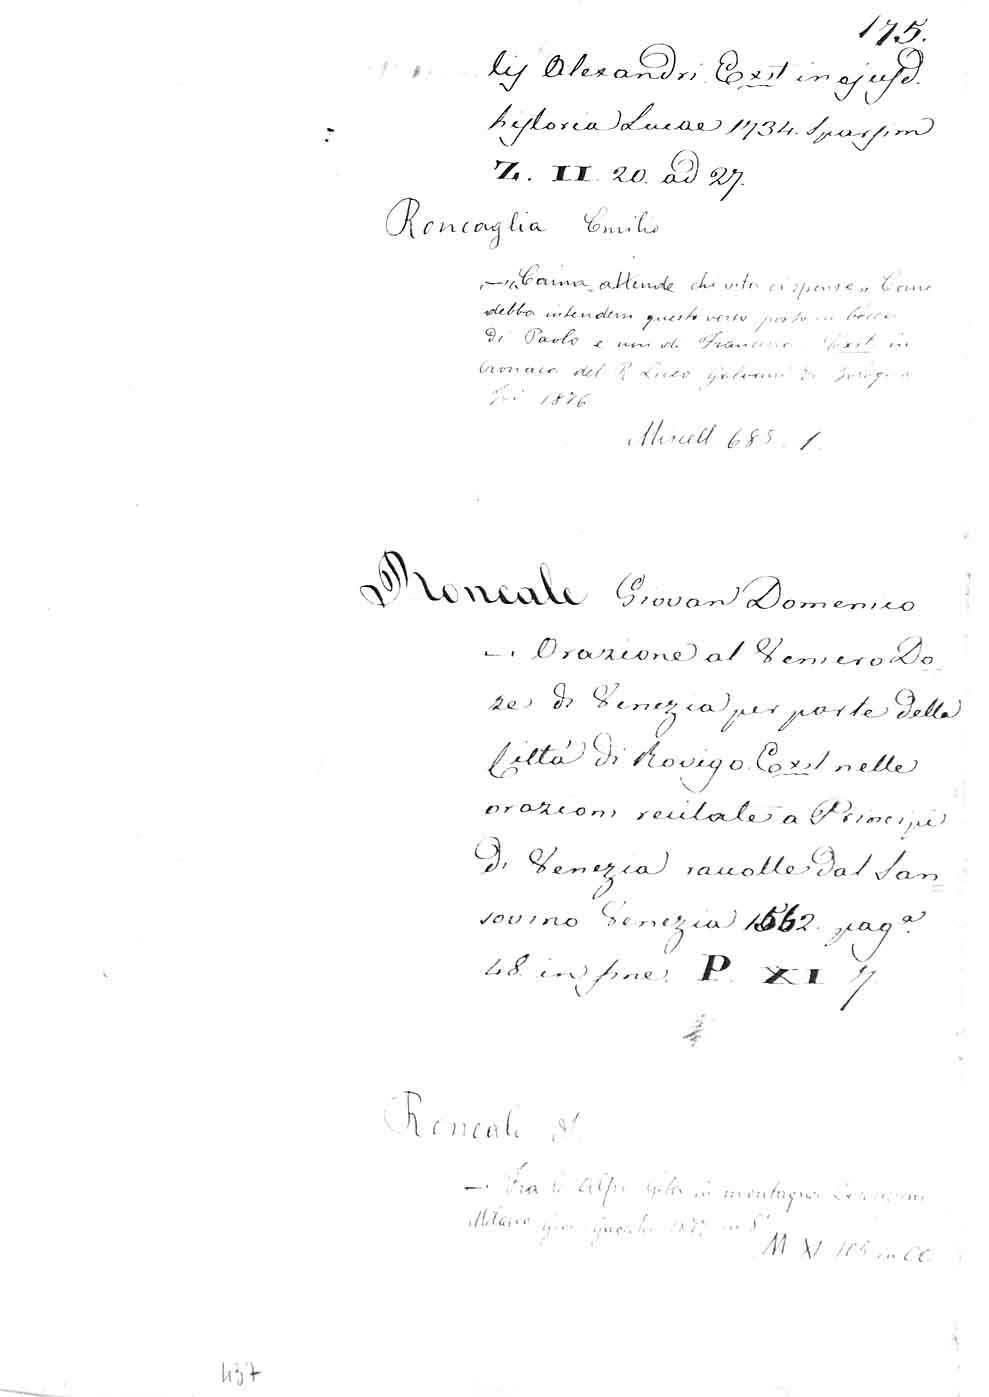 175.
lij Alexandri. Exst in ejusd.
historia Lucae 1734. Sparsim
Z. II. 20. ad 27.
Roncaglia Emilio
—. "Caina attende chi vita ci spense" Come
debba intendersi questo verso posto in bocca
di Paolo e non di Francesca. Exst in
Cronaca del R. Liceo Galvani di Bologna
Ivi 1876
Miscell 685. 1.
Roncale Giovan Domenico
—. Orazione al Veniero Do=
ze di Venezia per parte della
Città di Rovigo. Exst nelle
orazioni recitate a Principi
di Venezia raccolte dal San=
sovino Venezia 1562. pagª.
48. in fine. P. XI 7.
Roncali
—. Fra le Alpi in montagna
Milano 187 in 8°
M XI 105 in CC
437